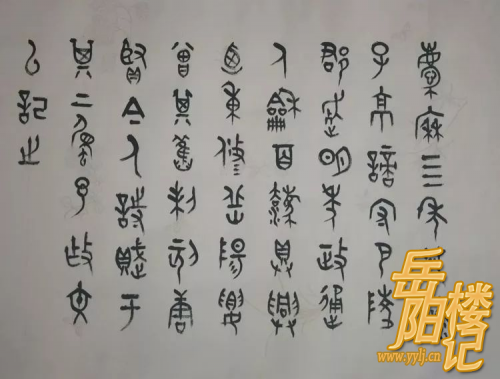 慶曆四年
子京謫守巴陵
郡越明年政通
人和百廢具興
乃重修岳陽樓
增其舊制刻唐
賢今人詩賦于
其上屬予作文
以記之
岳阳楼记
www.yylj.cn